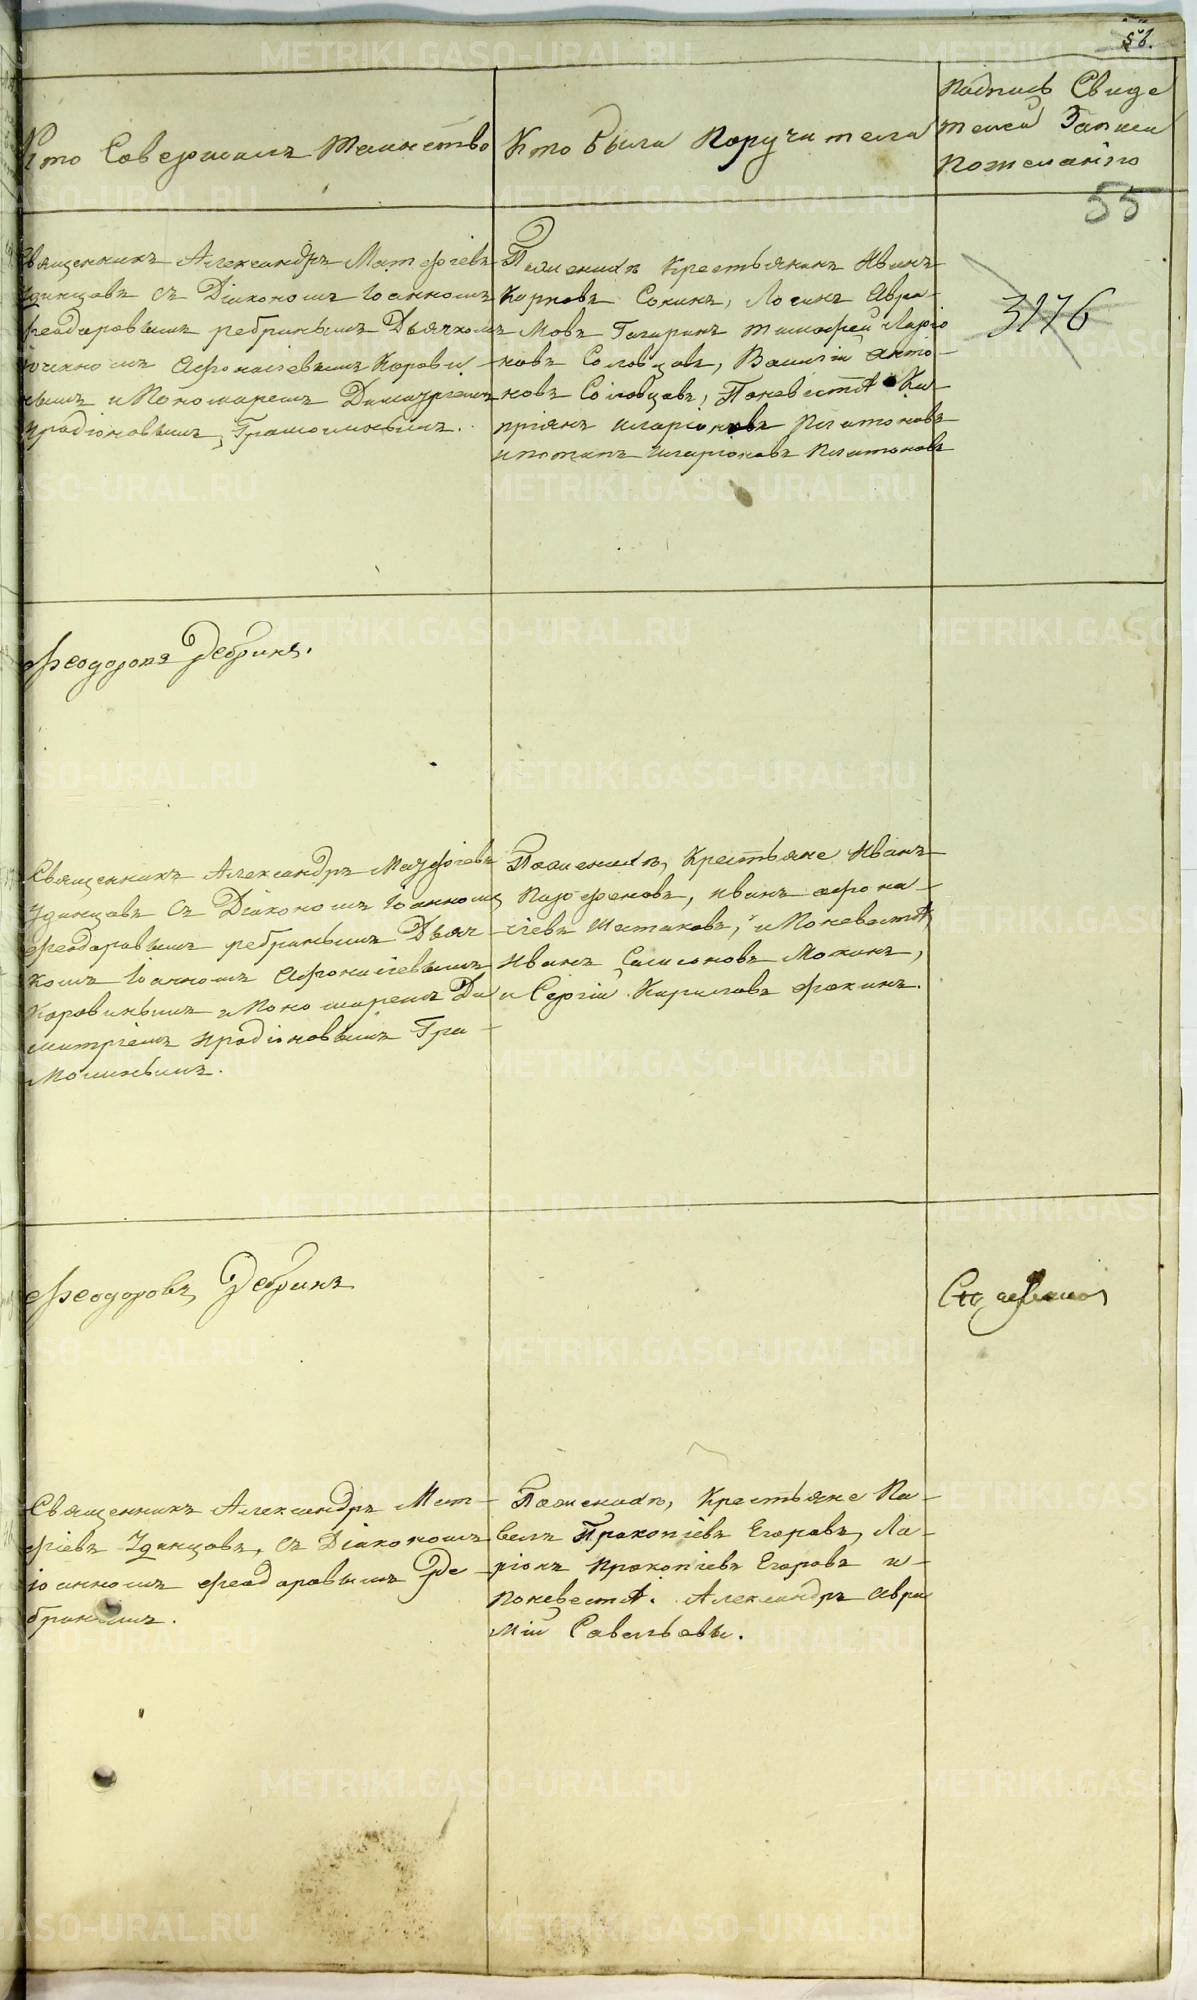 56.
Кто Совершалъ Таинство
Кто были Поручители
Подпись Свиде
телей Записи
Пожеланiю
55
3176
Священникъ Александръ Матфiевъ
Удинцовъ съ Дiакономъ Iоанномъ
Феодоровымъ ребринымъ Дьячкомъ
Афонасiевымъ Корови-
нымъ и Пономаремъ Димитрiемъ
Иродiоновымъ Грамолинымъ.
Поженихѣ Крестьянинъ Иванъ
Карповъ Сокинъ, Логинъ Авра-
мовъ Гагаринъ тимофей Ларiо
новъ Соловцовъ, Василiй Анто-
новъ Соловцовъ, Поневестѣ Ки-
прiянъ иларiоновъ Платоновъ
и потапъ иларiоновъ Платоновъ
Феодоровъ Ребринъ.
Священникъ Александръ Матфiевъ
Удинцовъ Съ Дiакономъ Iоанномъ
феодоровымъ ребринымъ Дьяч
комъ Iоанномъ Афонасiевымъ
Коровинымъ и Пономаремъ Ди
митрiемъ Иродiоновымъ Гра-
молинымъ.
Поженихѣ, Крестьяне Иванъ
Парфеновъ, иванъ афона-
сiевъ Шестаковъ, и Поневестѣ
Иванъ Самсоновъ Мокинъ,
и Сергiй Кириловъ Фокинъ.
Феодоровъ Ребринъ
Священникъ Александръ Мат-
фiевъ Удинцовъ, съ Дiакономъ
iоанномъ феодоровымъ Ре-
бринымъ.
Поженихѣ, Крестьяне Па-
велъ Прокопiевъ Егоровъ, Ла-
рiонъ Прокопiевъ Егоровъ и
Поневестѣ. Александръ Авра
мiй Савельевы.